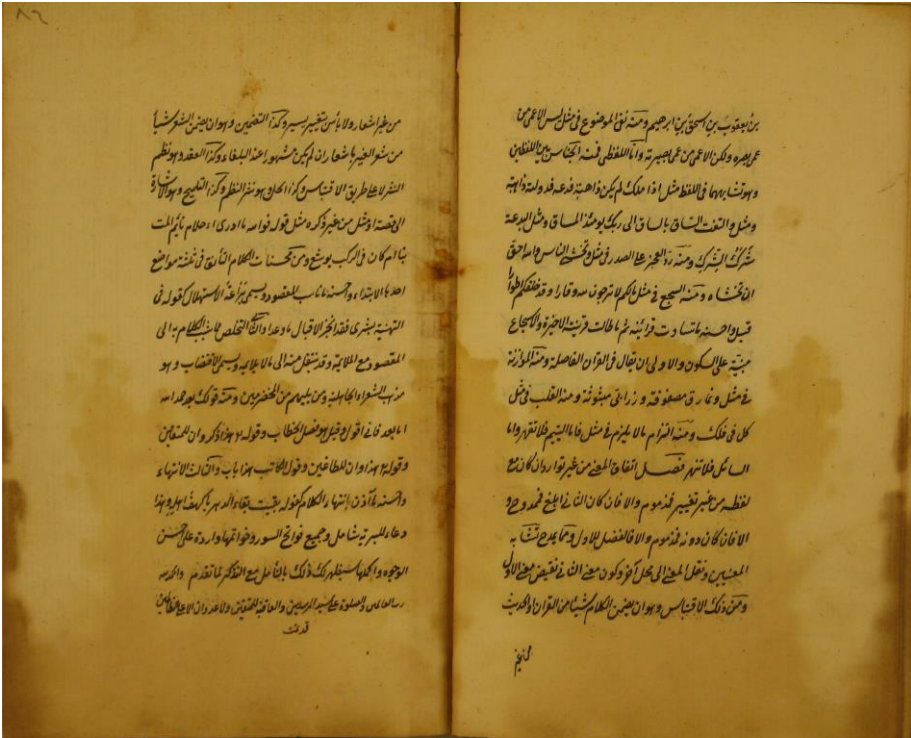 بن يعقوب بن اسحق بن ابرهيم ومنه نفى الموضوع فى مثل ليس الاعمى من
عمى بصره ولكن الاعمى من عمى بصيرته واما اللفظى فمنه الجناس بين اللفظين
وهو تشابههما فى اللفظ مثل اذا ملك لم يكن ذا هبة فدعه فدولته ذاهبة
ومثل والتفت الساق بالساق الى ربك يومئذ المساق ومثل البدعة
شرك الشرك ومنه رد العجز على الصدر فى مثل وتخشى الناس والله احق
ان تخشاه ومنه السجع فى مثل ما لكم لا ترجون لله وقارا وقد خلقكم اطوارا
قيل واحسنه ما تساوت قرائنه ثم ما طالت قرينته الاخيرة والاسجاع
مبنية على السكون والاولى ان يقال فى القران الفاصلة ومنه الموازنة
فى مثل ونمارق مصفوفة وزرابى مبثوثة ومنه القلب فى مثل
كل فى فلك ومنه التزام ما لا يلزم فى مثل فاما اليتيم فلا تقهر واما
السائل فلا تنهر فصل اتفاق المعنى من غير توارد ان كان مع
لفظه من غير تغيير فمذموم والا فان كان الثانى ابلغ فممدوح و
الا فان كان دونه فمذموم والا فالفضل للاول ومما يمدح تشابه
المعنيين ونقل المعنى الى محل آخر وكون معنى الثانى نقيض معنى الاول
ومن ذلك الاقتباس وهو ان يضمن الكلام شيئا من القران او الحديث
من غير
٨٢
من غير اشعار ولا بأس بتغيير يسير وكذا التضمين وهو ان يضمن الشعر شيئا
من شعر الغير باشعار ان لم يكن مشهورا عند البلغاء وكذا العقد وهو نظم
النثر لا على طريق الاقتباس وكذا الحل وهو نثر النظم وكذا التلميح وهو الاشارة
الى قصة او مثل من غير ذكره مثل قوله فوالله ما ادرى أاحلام نايم المت
بنا ام كان فى الركب يوشع ومن محسنات الكلام التأنق فى ثلثة مواضع
احدها الابتداء واحسنه ما ناسب المقصود ويسمى براعة الاستهلال كقوله فى
التهنية بشرى فقد انجز الاقبال ما وعدا والثانى التخلص مما شبب الكلام به الى
المقصود مع الملايمة وقد ينتقل منه الى ما لا يلايمه ويسمى الاقتضاب وهو
مذهب الشعراء الجاهلية ومن يليهم من المخضرمين ومنه قولك بعد حمد الله
اما بعد فانى اقول وقيل هو فصل الخطاب وقوله تع هذا ذكر وان للمتقين
وقوله تع هذا وان للطاغين وقول الكاتب هذا باب والثالث الانتهاء
واحسنه ما آذن بانتهاء الكلام كقوله بقيت بقاء الدهر يا كهف اهله وهذا
دعاء للبرية شامل وجميع فواتح السور وخواتمها واردة على احسن
الوجوه واكملها سيظهر لك ذلك بالتأمل مع التذكر لما تقدم والحمد لله
رب العالمين والصلوة على سيد المرسلين والعاقبة للمتقين ولا عدوان الا على الظالمين
قد تمت